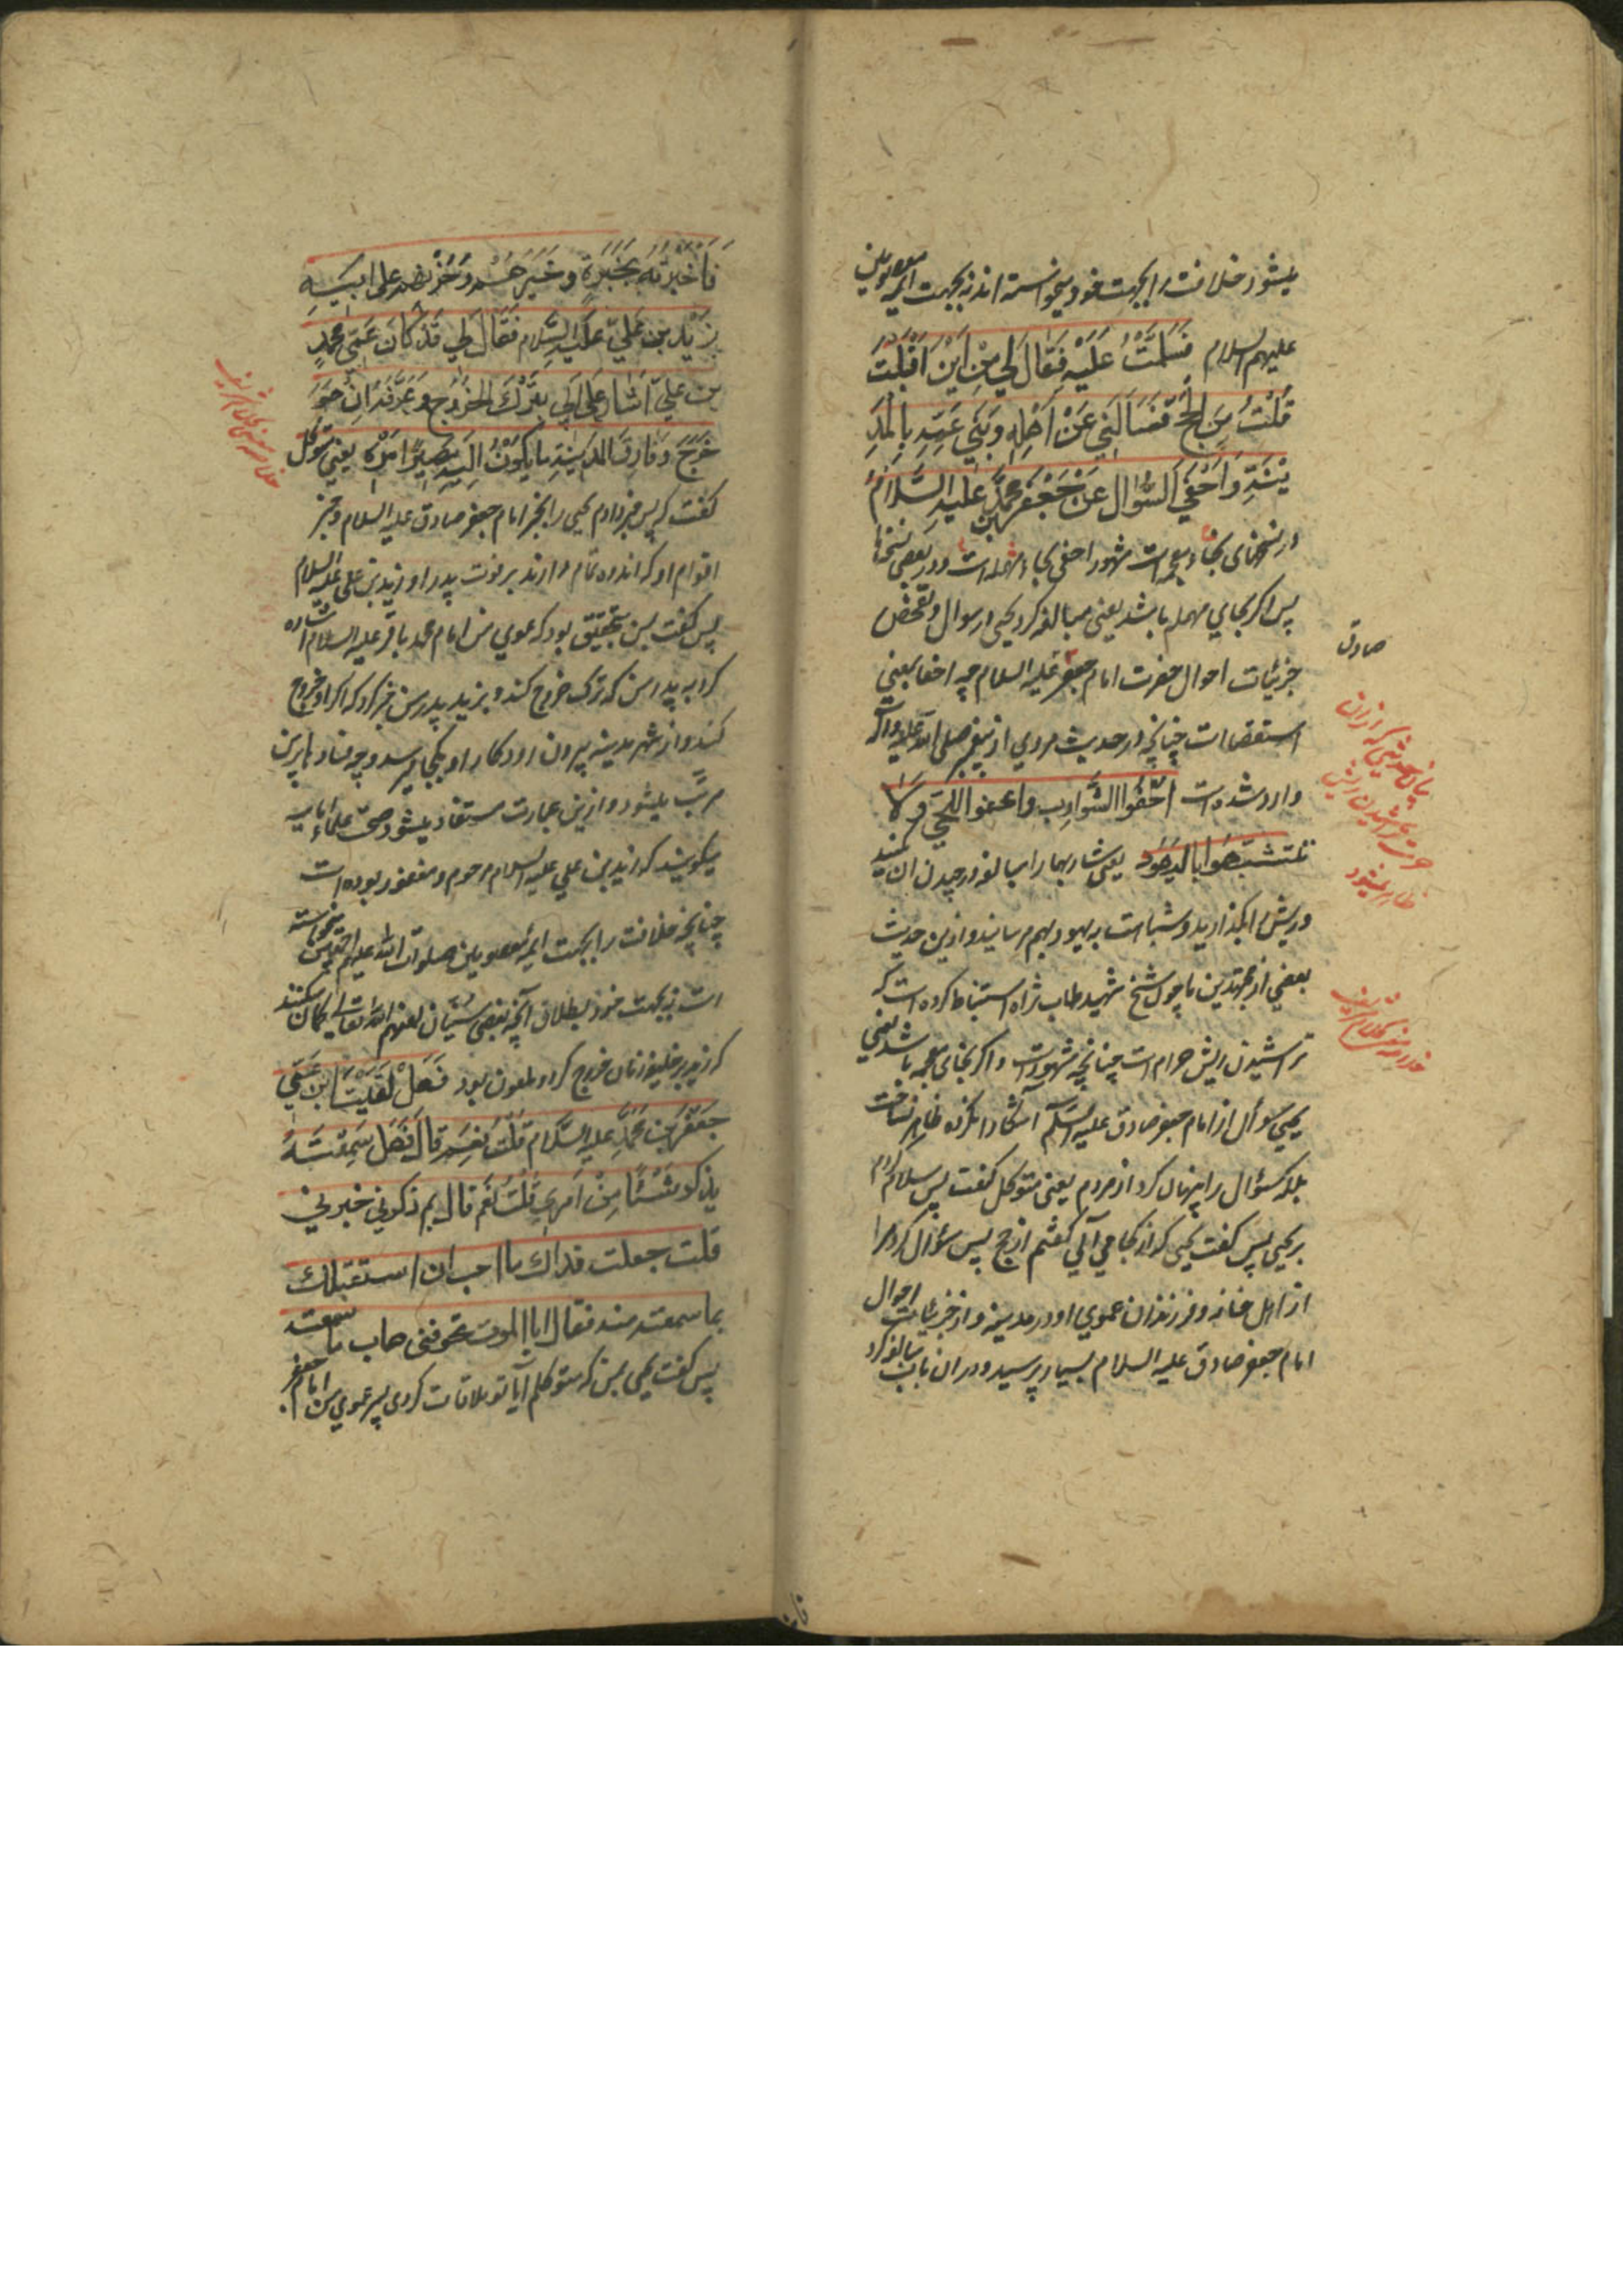 میشود خلافت را بجهت خود میخواسته اند نه بجهت ایمه معصومین
علیهم السلام فَسَلَّمْتُ عَلَيْهِ فَقَالَ لِي مِنْ اَيْنَ اَقْبَلْتَ
قُلْتُ مِنَ الْحَجِّ فَسَاَلَنِي عَنْ اَهْلِهِ وَبَنِي عَمِّهِ بِالْمَدِ
يْنَةِ وَاَحْفَي السُّؤالَ عَنْ جَعْفَرِ بْنِ مُحَمَّدٍ عَلَيْهِ السَّلَامُ
در نسخهای بخاء معجمه است مشهور احفی بحاء مهمله است ودر بعضی نسخها
پس اکر بحای مهمله باشد یعنی مبالغه کرد یحیی در سوال و تفحص
جزئیات احوال حضرت امام جعفر علیه السلام چه احفا بمعنی
صادق
استقصا است چنانچه در حدیث مروی از پیغمبر صلی الله علیه واله
وارد شده است احْفُوا الشَّوارِب واعفوا اللُّحَي وَلَا
تتشبَّهُوا بِالْيَهُود یعنی شاربها را مبالغه در چیدن ان کنید
و ریش را بگذارید و شباهت به یهود بهم مرسانید و ازین حدیث
بعضی از مجتهدین ما چون شیخ شهید طاب ثراه استنباط کرده است که
تراشیدن ریش حرام است چنانچه مشهور است و اکر بخای معجمه باشد یعنی
یحیی سوال از امام جعفر صادق علیه السلام آشکارا نکرده ظاهر نساخت
بلکه سؤال را پنهان کرد از مردم یعنی متوکل گفت پس سلام کردم
بر یحیی پس گفت یحیی که از کجا می آئی گفتم از حج پس سؤال کرد مرا
از اهل خانه و فرزندان عموی او در مدینه و از جزئیات احوال
امام جعفر صادق علیه السلام بسیار پرسید و در ان باب مبالغه کرد
فَاَخْبَرْتُهُ بِخَبَرِهِ وخَبَرِهِمْ وَحُزْنِهِمْ على ابيهِ
زَيْد بن عَلِيّ عَلَيْهِ السَّلام فَقَالَ لِي قَدْ كَانَ عَمِّي مُحَمَّدُ
بن عليّ اَشَارَ عَلَى اَبِي بِتَرْكِ الْخُرُوجِ وَعَرَّفَهُ اِنْ هُوَ
خَرَجَ وَفَارَقَ الْمَدِينَةَ مَا يَكُونُ اِلَيْهِ مَصِيرُ اَمْرِهِ یعنی متوکل
گفت که پس خبر دادم یحیی را بخبر امام جعفر صادق علیه السلام و خبر
اقوام او که اندوه تمام دارند بر فوت پدر او زید بن علی علیه السلام
پس گفت بمن بتحقیق بود که عموی من امام محمد باقر علیه السلام اشاره
کرد به پدر من که ترک خروج کند و بزید پدر من خبر کرد که اکر او خروج
کند و از شهر مدینه بیرون رود کار او بکجا میرسد و چه فساد باین
مرتب میشود و ازین عبارت مستفاد میشود صحت علماء امامیه
میگویند که زید بن علی علیه السلام مرحوم و مغفور بوده است
چنانچه خلافت را بجهت ایمه معصومین صلوات الله علیهم اجمعین میخواسته
است نه بجهت خود بطلان آنچه بعضی سنیان لعنهم الله تعالی گمان میکنند
که زید بر خلیفه زمان خروج کرد و ملعون بود فَهَلْ لَقِيْتَ ابْن عَمِّي
جَعْفَر بْن مُحَمَّدٍ عليه السَّلَام قُلْتُ نَعَمْ قَالَ فَهَل سَمِعْتَهُ
يذكر شَيْئًا مِنْ اَمْرِي قُلْتُ نَعَمْ قال بم ذكرني خبرني
قلت جعلت فداك ما احب ان استقبلك
بما سمعته منه فقال ابا الموت تخوفني هات ما سمعته
پس گفت یحیی بمن که متوکلم آیا تو ملاقات کردی پسر عموی من امام جعفر